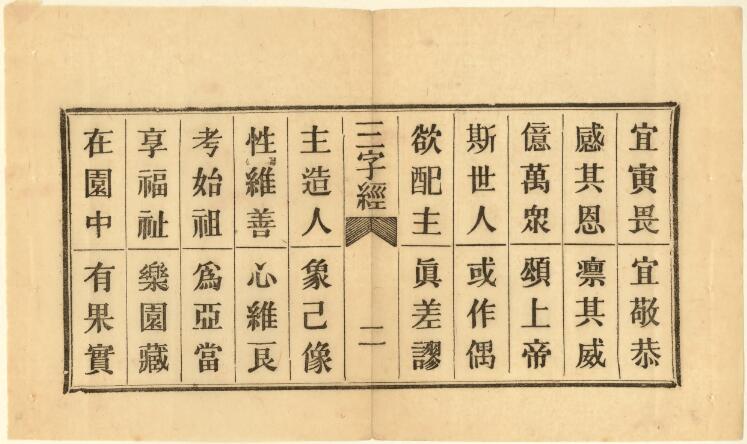 宜寅畏 宜敬恭
感其恩 凛其威
億萬眾 頌上帝
斯世人 或作偶
欲配主 眞差謬
三字經 二
主造人 象己像
性維善 心維良
考始祖 爲亞當
享福祉 樂園藏
在園中 有果實